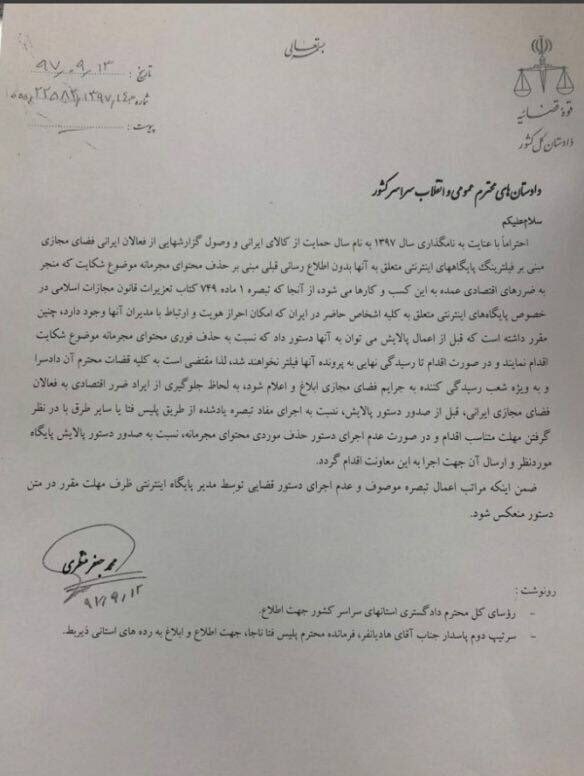 بسمه تعالی
تاریخ: ۹۷.۹.۱۳
شماره
پیوست:
قوهٔ قضائیه
دادستان کل کشور
دادستان‌های محترم عمومی و انقلاب سراسر کشور
سلام علیکم
احتراماً با عنایت به نامگذاری سال ۱۳۹۷ به نام سال حمایت از کالای ایرانی و وصول گزارشهایی از فعالان ایرانی فضای مجازی
مبنی بر فیلترینگ پایگاههای اینترنتی متعلق به آنها بدون اطلاع رسانی قبلی مبنی بر حذف محتوای مجرمانه موضوع شکایت که منجر
به ضررهای اقتصادی عمده به این کسب و کارها می شود، از آنجا که تبصره ۱ ماده ۷۴۹ کتاب تعزیرات قانون مجازات اسلامی در
خصوص پایگاه‌های اینترنتی متعلق به کلیه اشخاص حاضر در ایران که امکان احراز هویت و ارتباط با مدیران آنها وجود دارد، چنین
مقرر داشته است که قبل از اعمال پالایش می توان به آنها دستور داد که نسبت به حذف فوری محتوای مجرمانه موضوع شکایت
اقدام نمایند و در صورت اقدام تا رسیدگی نهایی به پرونده آنها فیلتر نخواهند شد، لذا مقتضی است به کلیه قضات محترم آن دادسرا
و به ویژه شعب رسیدگی کننده به جرایم فضای مجازی ابلاغ و اعلام شود، به لحاظ جلوگیری از ایراد ضرر اقتصادی به فعالان
فضای مجازی ایرانی، قبل از صدور دستور پالایش، نسبت به اجرای مفاد تبصره یادشده از طریق پلیس فتا یا سایر طرق با در نظر
گرفتن مهلت متناسب اقدام و در صورت عدم اجرای دستور حذف موردی محتوای مجرمانه، نسبت به صدور دستور پالایش پایگاه
موردنظر و ارسال آن جهت اجرا به این معاونت اقدام گردد.
ضمن اینکه مراتب اعمال تبصره موصوف و عدم اجرای دستور قضایی توسط مدیر پایگاه اینترنتی ظرف مهلت مقرر در متن
دستور منعکس شود.
محمد جعفر منتظری
۹۷/۹/۱۲
رونوشت:
- رؤسای کل محترم دادگستری استانهای سراسر کشور جهت اطلاع.
- سرتیپ دوم پاسدار جناب آقای هادیانفر، فرمانده محترم پلیس فتا ناجا، جهت اطلاع و ابلاغ به رده های استانی ذیربط.